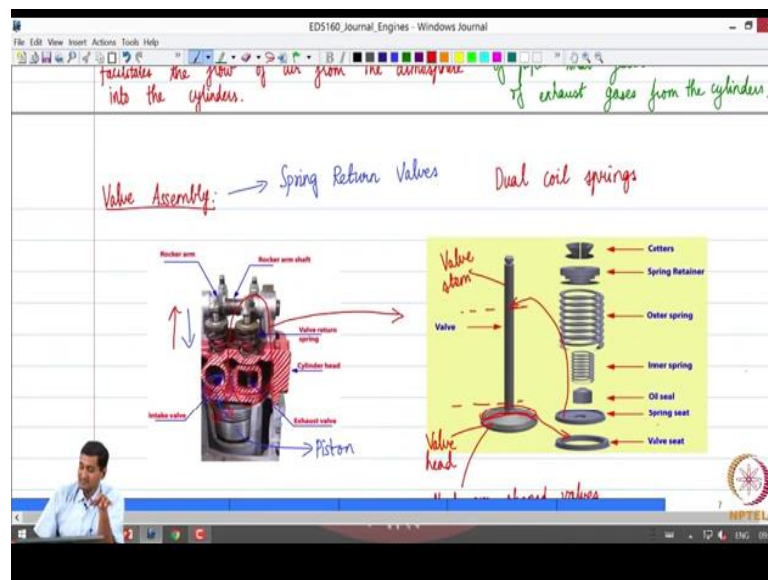 ED5160_Journal_Engines - Windows Journal
File Edit View Insert Actions Tools Help
facilitates the flow of air from the atmosphere
into the cylinders.
of exhaust gases from the cylinders.
Valve Assembly: → Spring Return Valves Dual coil springs
Rocker arm
Rocker arm shaft
Valve return
spring
Cylinder head
Intake valve
Exhaust valve
Piston
Valve
stem
Valve
Valve
head
Cotters
Spring Retainer
Outer spring
Inner spring
Oil seal
Spring seat
Valve seat
shaped valves
7
NPTEL
ENG